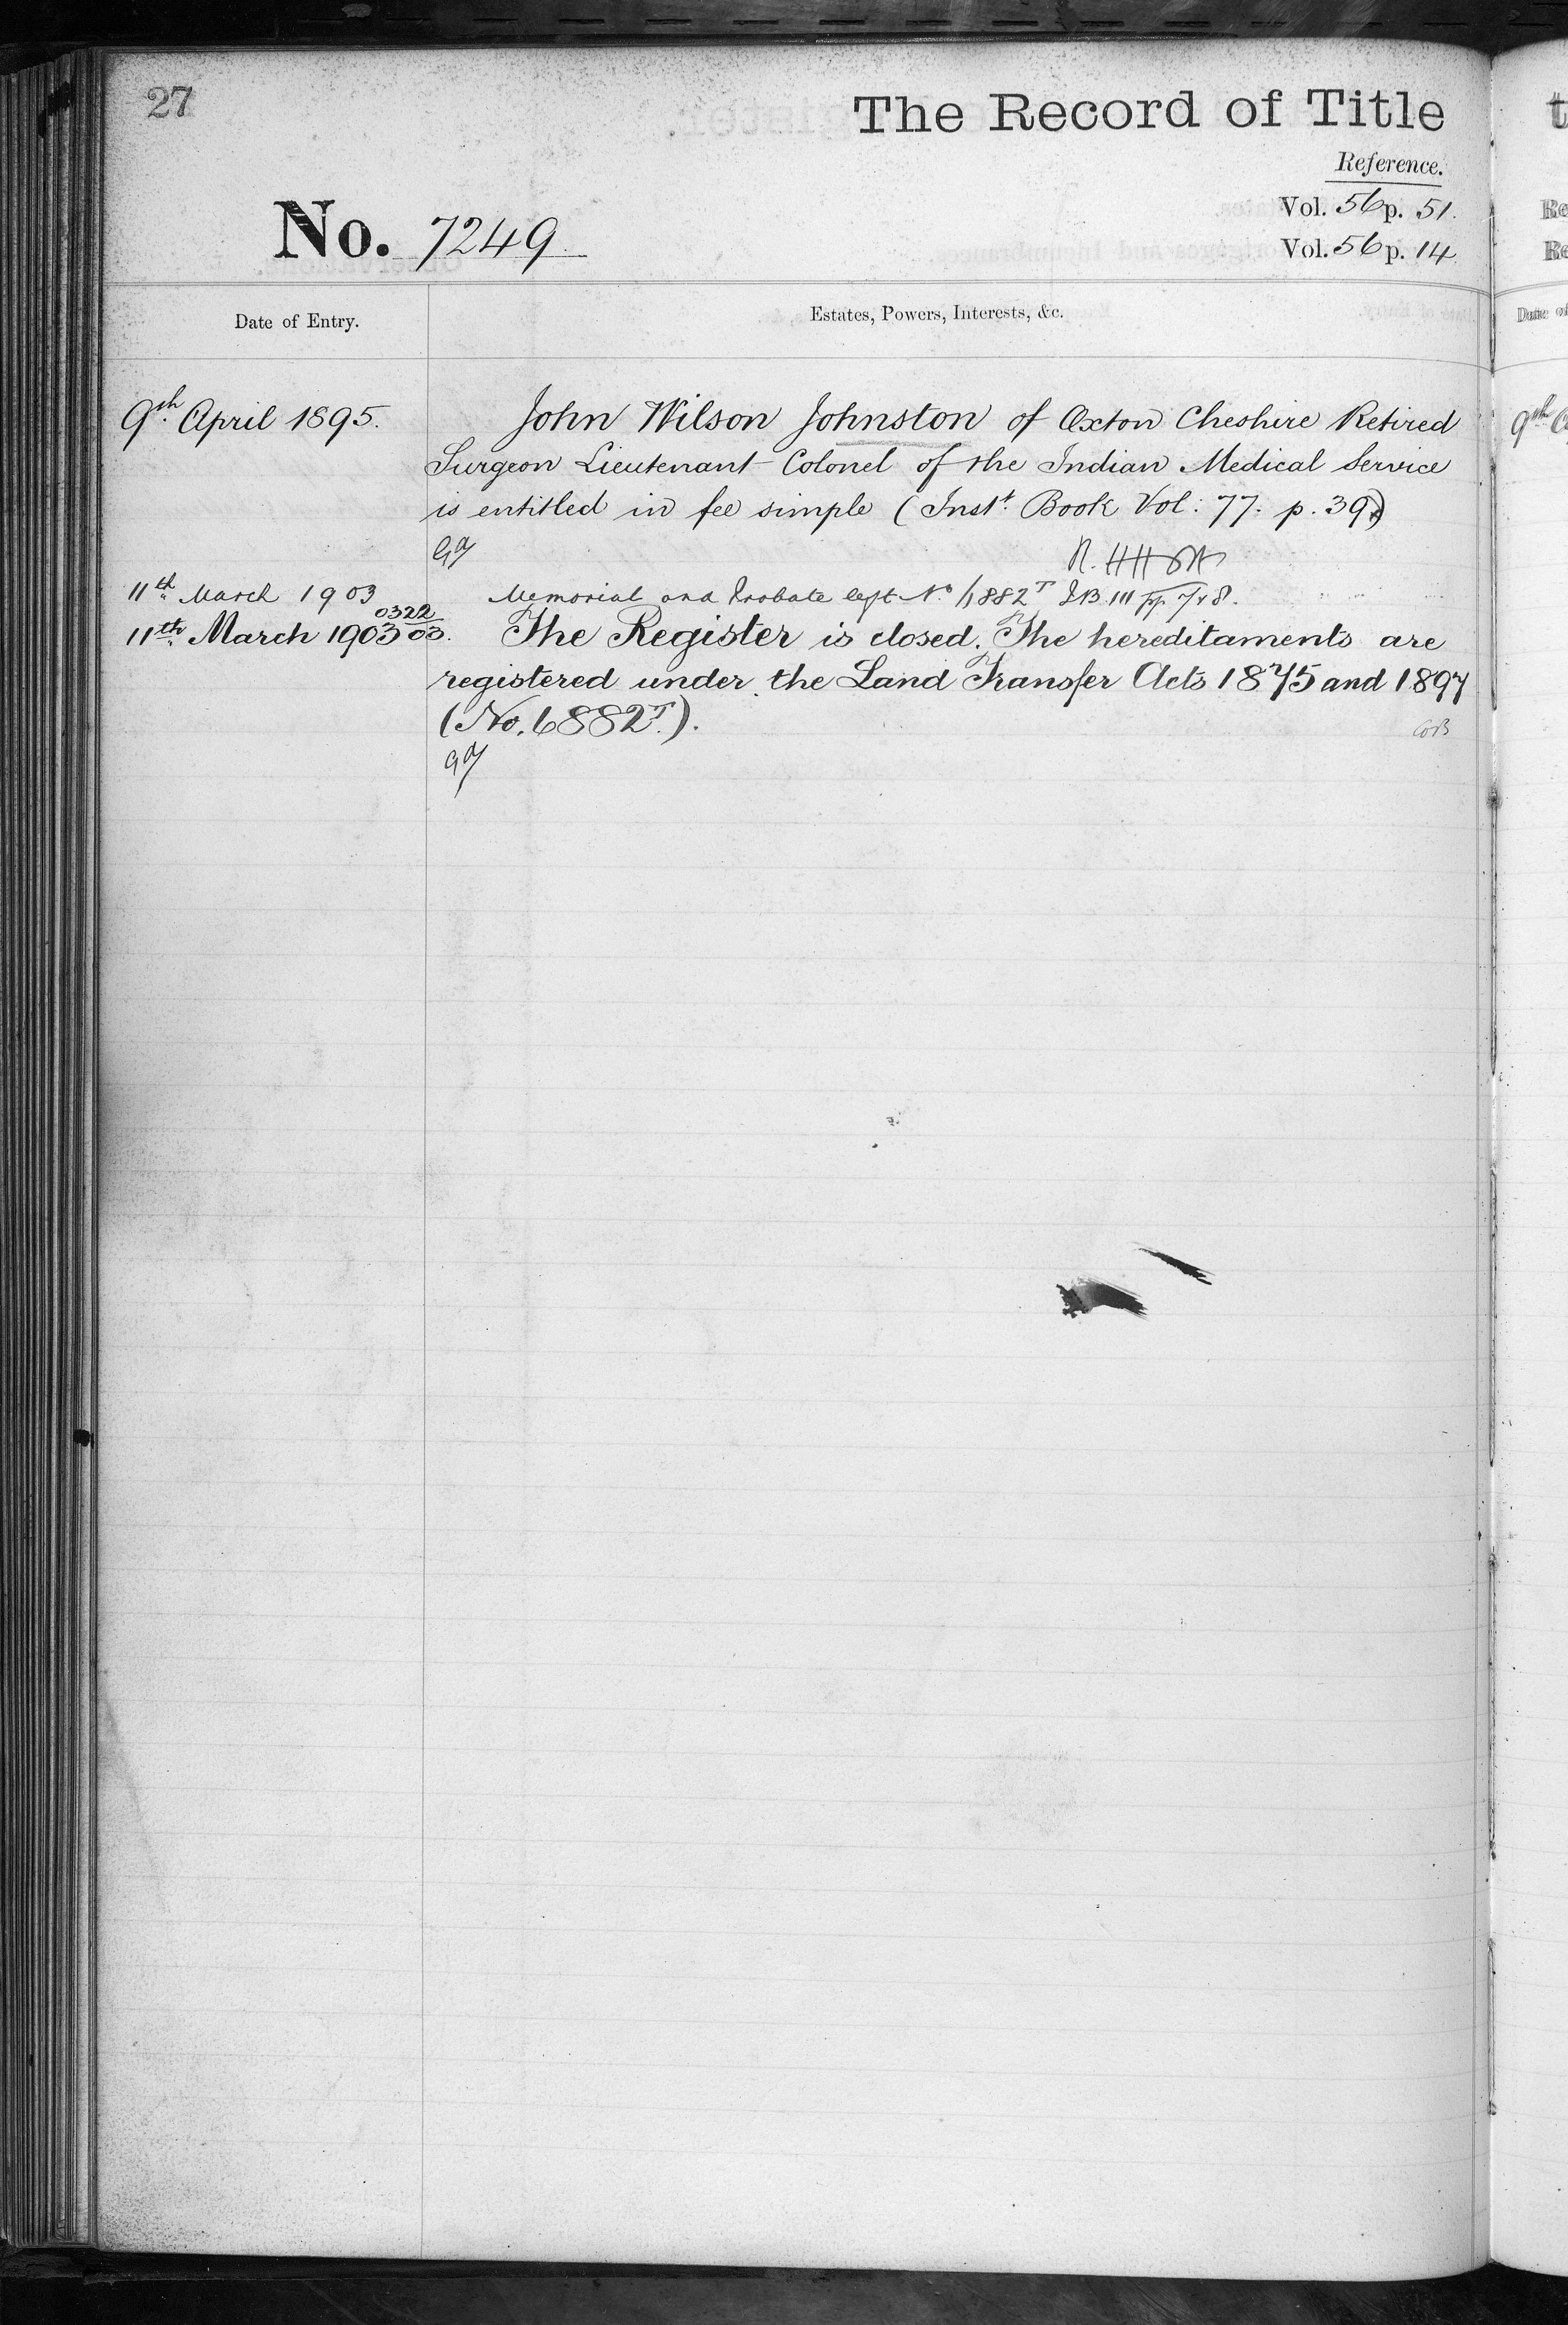 27
The Record of Title
Reference.
No. 7249.
Vol. 56 p. 51.
Vol. 56 p. 14
Date of Entry.
Estates, Powers, Interests, &c.
9th April 1895.
John Wilson Johnston of Oxton Cheshire Retired
Surgeon Lieutenant Colonel of the Indian Medical Service
is entitled in fee simple (Inst. Book Vol: 77. p. 39)
11th March 1903
Memorial and Probate left No 1/1882T IB 111 pp 7 & 8.
0322
11th March 1903 03.
The Register is closed. The hereditaments are
registered under the Land Transfer Acts 1875 and 1897
(No. 6882T.).
Date of
9th